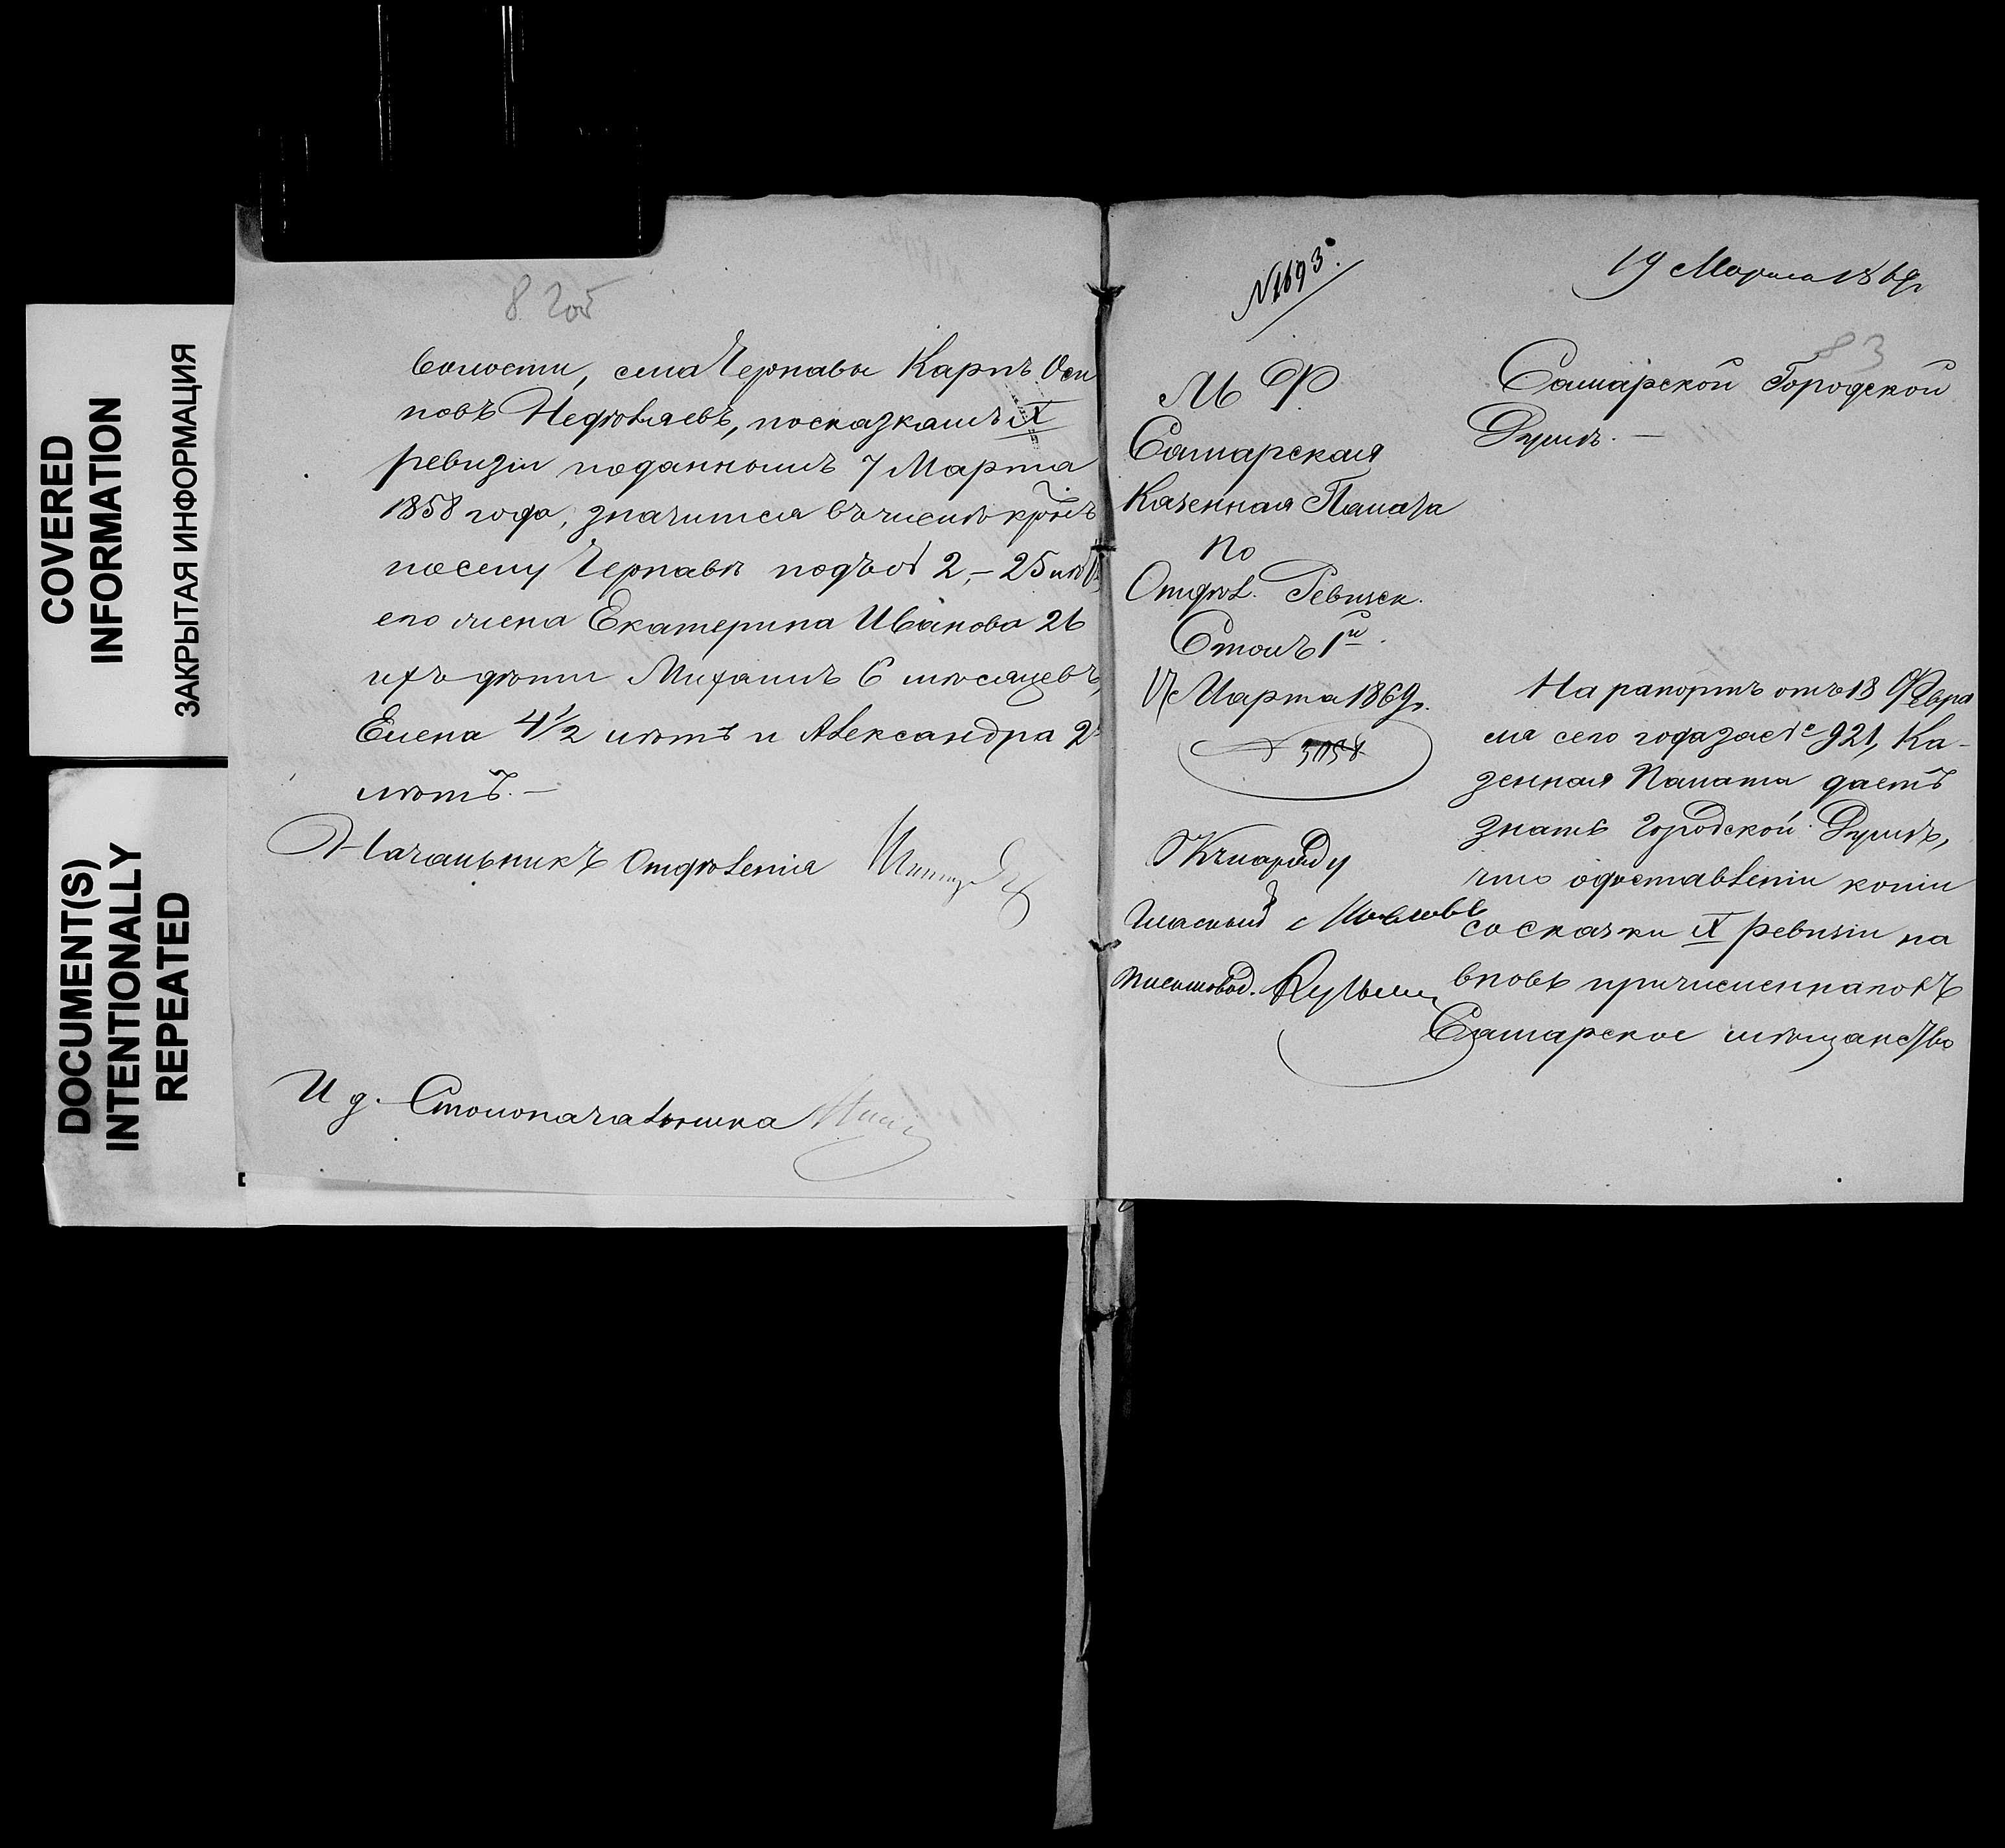 COVERED
INFORMATION
ЗАКРЫТАЯ ИНФОРМАЦИЯ
DOCUMENT(S)
INTENTIONALLY
REPEATED
82 об
волости, села Чернавы Карпъ Оси
повъ Недѣляевъ, по сказкамъ IX
ревизіи поданнымъ 7 Марта
1858 года, значится въ числѣ
по селу Чернавѣ подъ № 2, – 25 лѣтъ
его жена Екатерина Иванова 26
ихъ дѣти Михаилъ 6 мѣсяцевъ,
Елена 4½ лѣтъ и Александра 2
лѣтъ. –
Начальникъ Отдѣленія
И д. Столоначальника
№ 1693.
19 Марта 1869 г.
83
М Ф
Самарская
Казенная Палата
по
Отдѣл. Ревизск.
Столъ 1й
17 Марта 1869 г.
№ 5058
Къ наряду
Гласный
Письмовод.
Самарской Городской
Думѣ. –
На рапортъ отъ 18 Февра
ля сего года за № 921, Ка-
зенная Палата даетъ
знать Городской Думѣ,
что о доставленіи копіи
со сказки IX ревизіи на
вновь причисленнаго къ
Самарское мѣщанство